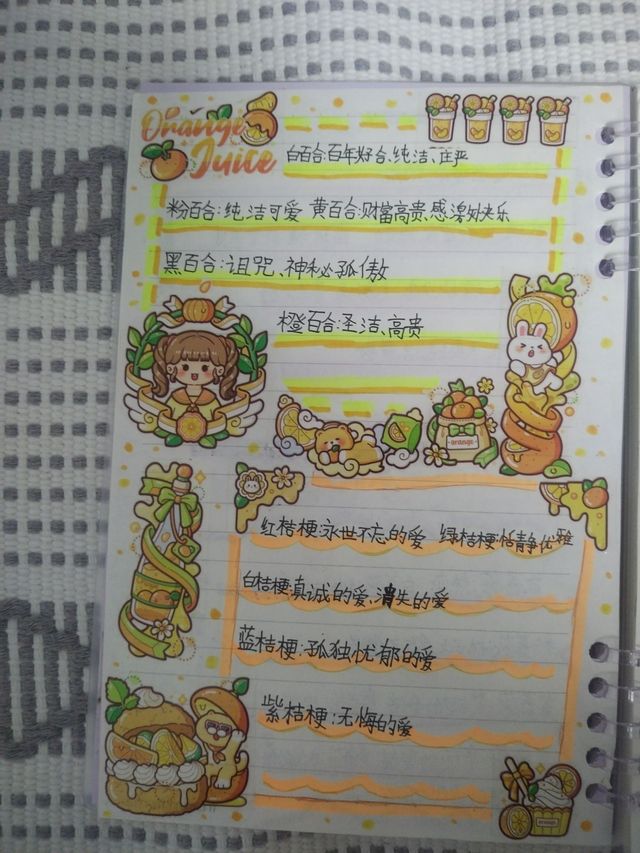 Orange Juice
白百合:百年好合、纯洁、庄严
粉百合:纯洁可爱 黄百合:财富高贵、感激、快乐
黑百合:诅咒、神秘孤傲
橙百合:圣洁、高贵
orange
红桔梗:永世不忘的爱 绿桔梗:恬静优雅
白桔梗:真诚的爱、消失的爱
蓝桔梗:孤独忧郁的爱
紫桔梗:无悔的爱